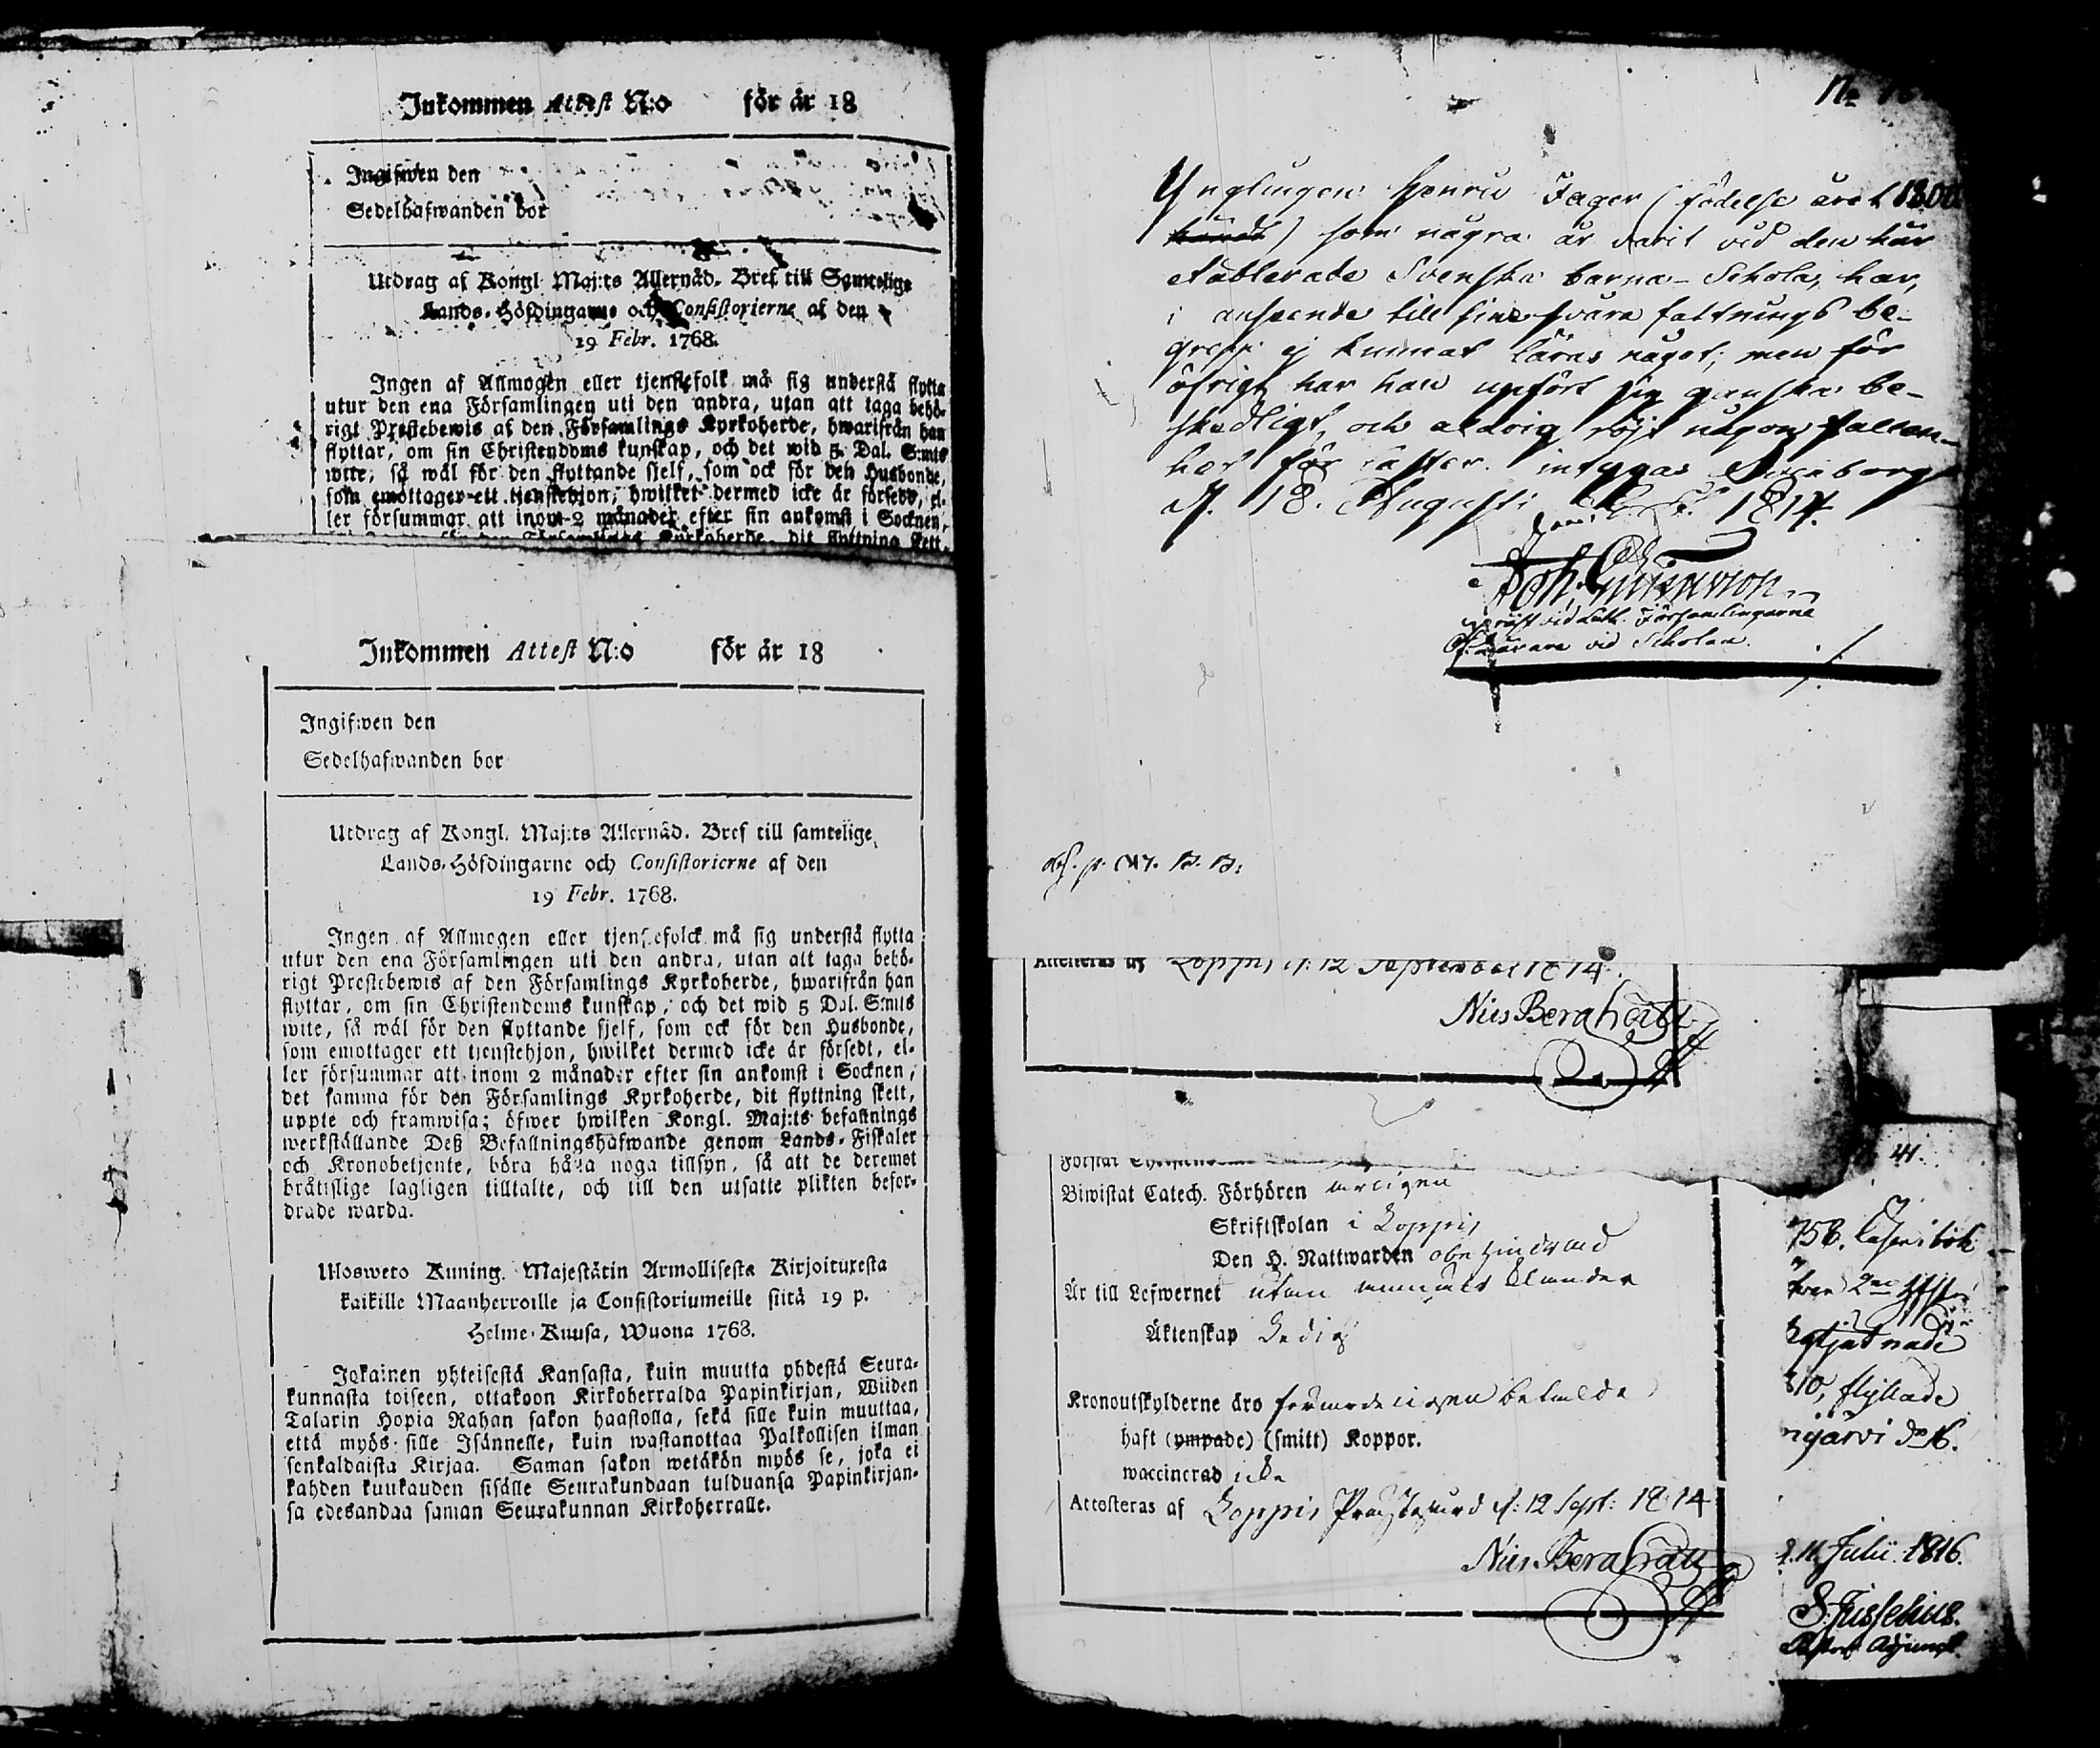 Inkommen Attest N:o för år 18
Ingifwen den
Sedelhafwanden bor
Utdrag af Kongl. Maj:ts Allernåd. Bref till Samtelige
Lands-Höfdingarne och Consistorierne af den
19 Febr. 1768.
Ingen af Allmogen eller tjenstefolk må sig understå flytta
utur den ena Församlingen uti den andra, utan att taga behö-
rigt Prestebewis af den Församlings Kyrkoherde, hwarifrån han
flyttar, om sin Christendoms kunskap, och det wid 5 Dal. S:mts
wite, så wäl för den flyttande sjelf, som ock för den Husbonde,
som emottager ett tjenstehjon, hwilket dermed icke är försedt, el-
ler försummar att inom 2 månader efter sin ankomst i Socknen,
Församlings Kyrkoherde, dit flyttning skett,
Inkommen Attest N:o för år 18
Ingifwen den
Sedelhafwanden bor
Utdrag af Kongl. Maj:ts Allernåd. Bref till samtelige
Lands-Höfdingarne och Consistorierne af den
19 Febr. 1768.
Ingen af Allmogen eller tjenstefolck må sig understå flytta
utur den ena Församlingen uti den andra, utan att taga behö-
rigt Prestebewis af den Församlings Kyrkoherde, hwarifrån han
flyttar, om sin Christendoms kunskap, och det wid 5 Dal. S:mts
wite, så wäl för den flyttande sjelf, som ock för den Husbonde,
som emottager ett tjenstehjon, hwilket dermed icke är försedt, el-
ler försummar att inom 2 månader efter sin ankomst i Socknen,
det samma för den Församlings Kyrkoherde, dit flyttning skett,
uppte och framwisa; öfwer hwilken Kongl. Maj:ts befallnings
werkställande Deß Befallningshafwande genom Lands-Fiskaler
och Kronobetjente, böra hålla noga tillsyn, så att de deremot
bråttslige lagligen tilltalte, och till den utsatte plikten befor-
drade warda.
Ulosweto Kuning. Majestätin Armollisesta Kirjoituxesta
kaikille Maanherroille ja Consistoriumeille siitä 19 p.
Helme-Kuusa, Wuona 1768.
Jokainen yhteisestä Kansasta, kuin muutta yhdestä Seura-
kunnasta toiseen, ottakoon Kirkoherralda Papinkirjan, Wiiden
Talarin Hopia Rahan sakon haastolla, sekä sille kuin muuttaa,
että myös sille Isännelle, kuin wastanottaa Palkollisen ilman
senkaldaista Kirjaa. Saman sakon wetäkön myös se, joka ei
kahden kuukauden sisälle Seurakundaan tulduansa Papinkirjan-
sa edesandaa saman Seurakunnan Kirkoherralle.
Ynglingen Henric Jager (födelse året 1800
) som några år varit vid den här
etablerade Svenska barna-Schola, har,
i anseende till sine svåra fattnings be-
grepp ej kunnat läras något; men för
öfrigt har han upfört sig ganska be-
skedligt, och aldrig röjt någon fallen-
het för laster. intygar
d. 18. Augusti 1814.
Joh.
vid Luth. Församlingarne
Lärare vid Scholan.
Attesteras af Loppis d: 12 September 1814.
Nils Bergh
Biwistat Catech. Förhören årligen
Skriftskolan i Loppis
Den H. Nattwarden obehindrad
Är till Lefwernet utan klander
Äktenskap ledig
Kronoutskylderne äro betalde
haft (ympade) (smitt) Koppor.
waccinerad icke
Attesteras af Loppis Prästegård d: 12 Sept: 1814
Nils Bergh
41.
758. i bok
810, flyttade
järvi
d. 11 Julii 1816.